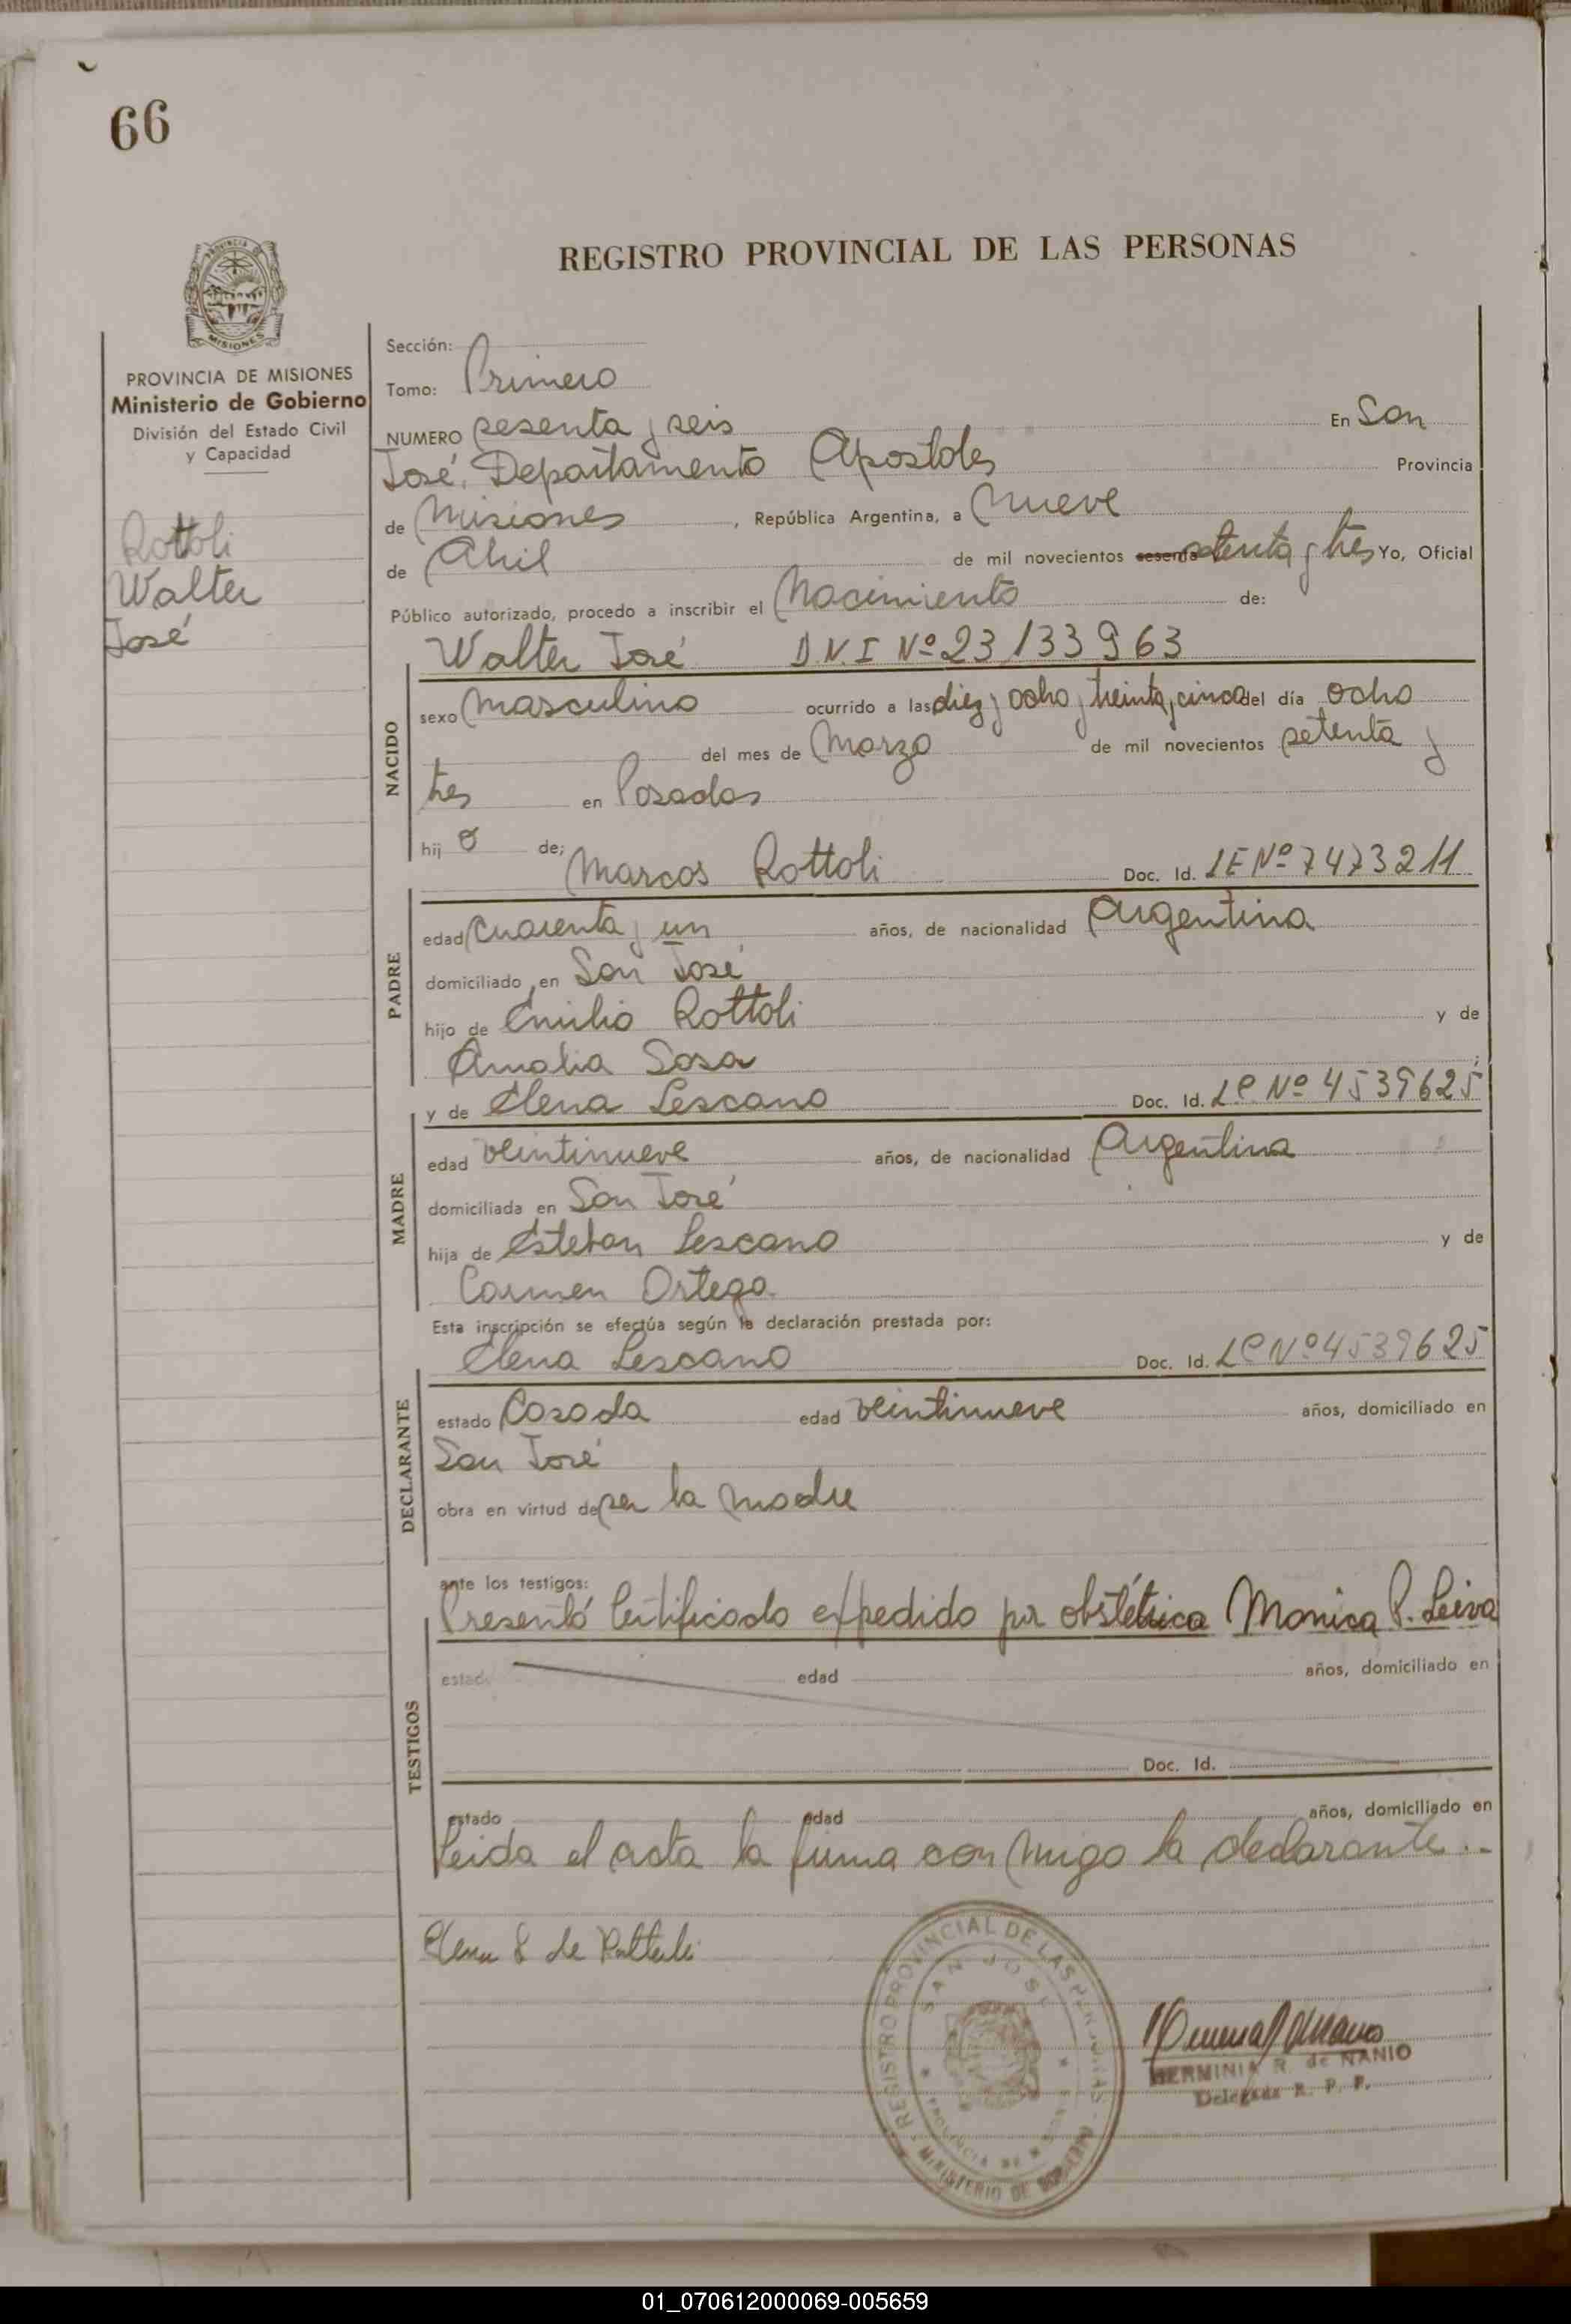 66
REGISTRO PROVINCIAL DE LAS PERSONAS
MISIONES
PROVINCIA DE MISIONES
Ministerio de Gobierno
División del Estado Civil
y Capacidad
Rottoli
Walter
José
Sección:
Tomo: Primero
NUMERO sesenta y seis En San
José, Departamento Apostoles Provincia
de Misiones, República Argentina, a nueve
de Abril de mil novecientos sesenta setenta y tres Yo, Oficial
Público autorizado, procedo a inscribir el Nacimiento de:
Walter José D.N.I Nº 23133963
NACIDO
sexo masculino ocurrido a las diez y ocho y treinta y cinco del día ocho
del mes de Marzo de mil novecientos setenta y
tres en Posadas
hij o de; Marcos Rottoli Doc. Id. LE Nº 7473211
PADRE
edad cuarenta y un años, de nacionalidad Argentina
domiciliado en San José
hijo de Emilio Rottoli y de
Amalia Sosa ;
y de Elena Lescano Doc. Id. LC Nº 4539625
MADRE
edad veintinueve años, de nacionalidad Argentina
domiciliada en San José
hija de Esteban Lescano y de
Carmen Ortega
Esta inscripción se efectúa según la declaración prestada por:
Elena Lescano Doc. Id. LC Nº 4539625
DECLARANTE
estado Casada edad veintinueve años, domiciliado en
San José
obra en virtud de ser la madre
ante los testigos:
Presentó Certificado expedido por obstétrica Monica P. Leiva
TESTIGOS
estado edad años, domiciliado en
Doc. Id.
estado edad años, domiciliado en
Leida el acta la firma con migo la declarante..
Elena L de Rottoli
REGISTRO PROVINCIAL DE LAS PERSONAS
SAN JOSE
PROVINCIA DE MISIONES
MINISTERIO DE GOBIERNO
HERMINIA R. de NANIO
Delegada R. P. P.
01_070612000069-005659